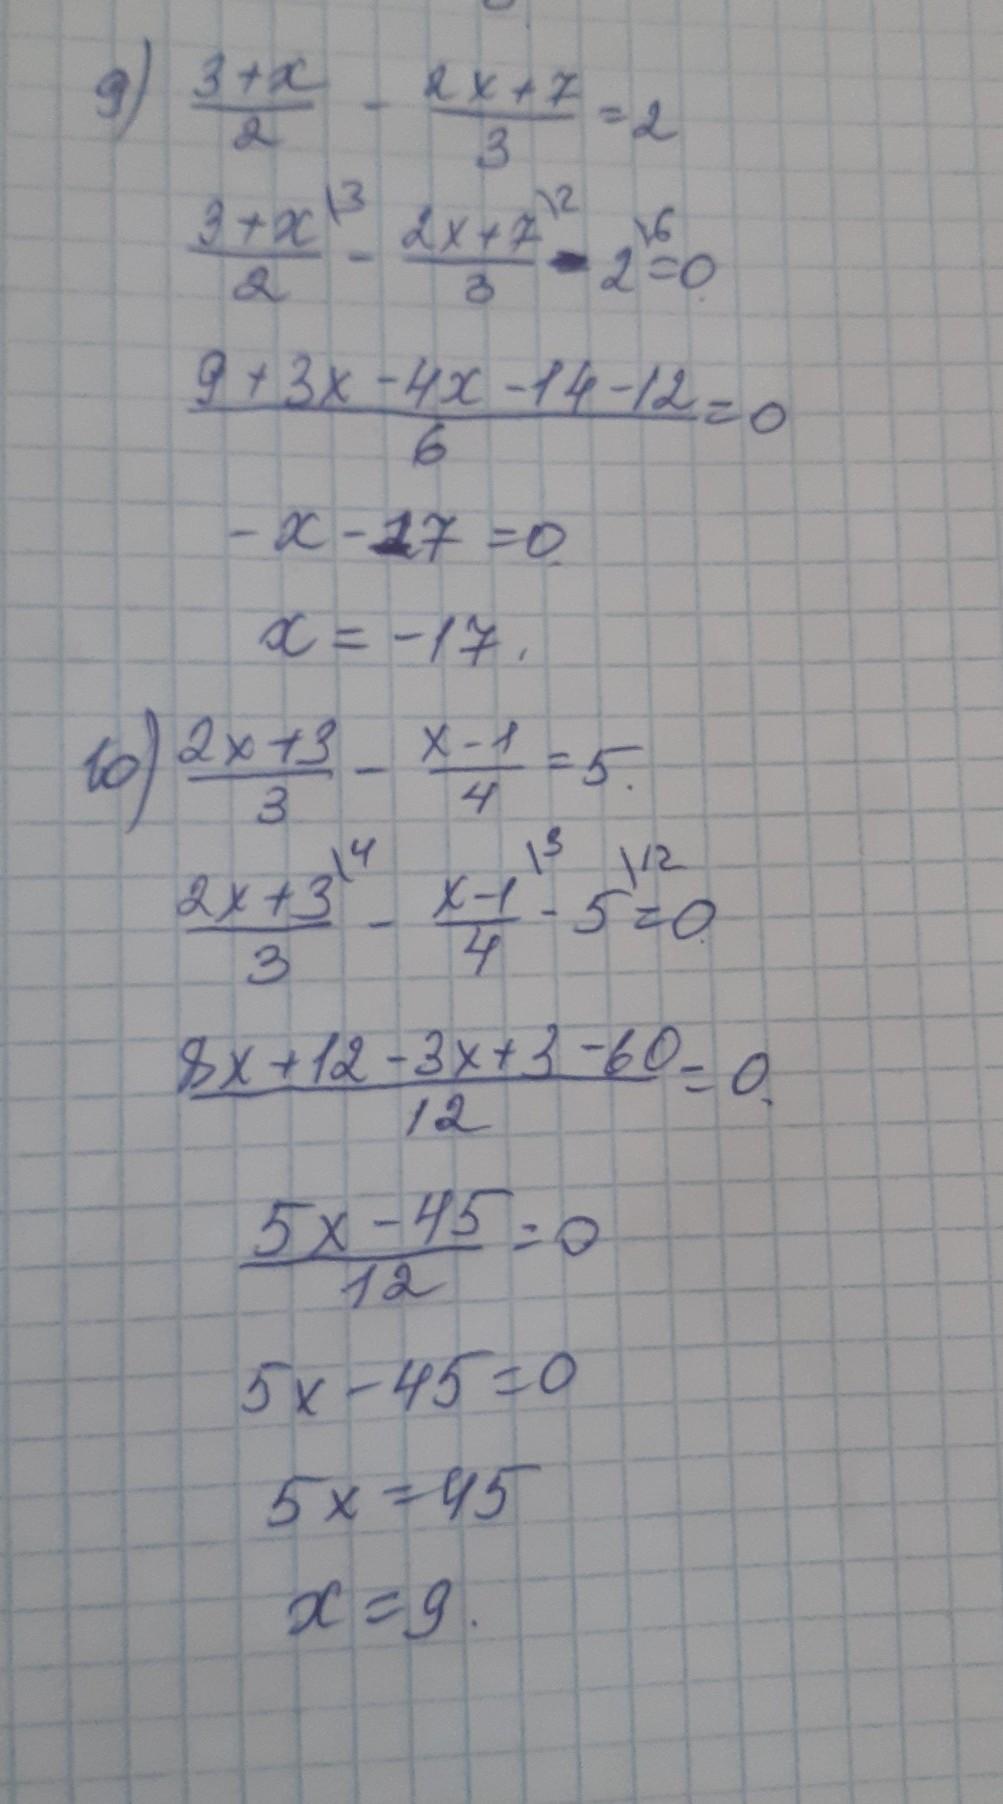 9) (3+x)/2 - (2x+7)/3 = 2
(3+x)/2 \3 - (2x+7)/3 \2 - 2 \6 = 0.
(9+3x-4x-14-12)/6 = 0
-x-17=0.
x=-17.
10) (2x+3)/3 - (x-1)/4 = 5.
(2x+3)/3 \4 - (x-1)/4 \3 - 5 \12 = 0.
(8x+12-3x+3-60)/12 = 0.
(5x-45)/12 = 0
5x-45=0
5x=45
x=9.